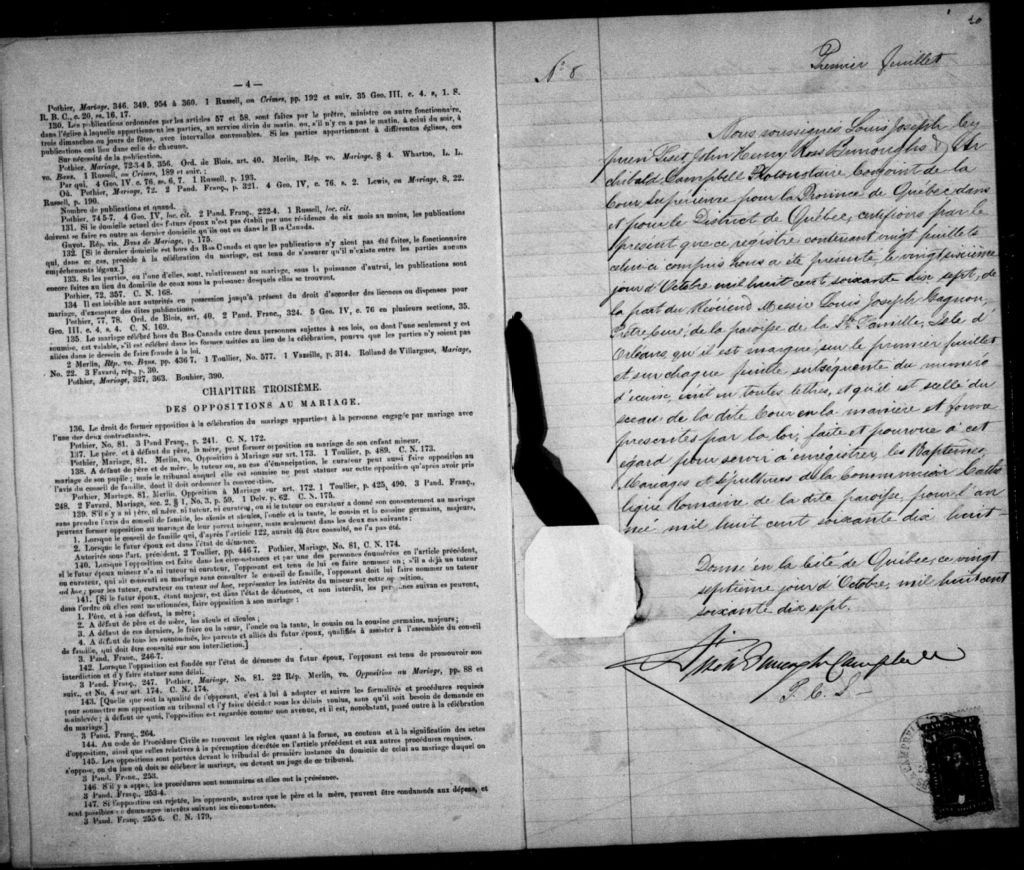 — 4 —
Pothier, Mariage, 346. 349. 954 à 360. 1 Russell, on Crimes, pp. 192 et suiv. 35 Geo. III. c. 4. s, 1. S.
R. B. C., c. 20, ss. 16, 17.
130. Les publications ordonnées par les articles 57 et 58, sont faites par le prêtre, ministre ou autre fonctionnaire,
dans l'église à laquelle appartiennent les parties, au service divin du matin, ou, s'il n'y en a pas le matin, à celui du soir, à
trois dimanches ou jours de fêtes, avec intervalles convenables. Si les parties appartiennent à différentes églises, ces
publications ont lieu dans celle de chacune.
Sur nécessité de la publication.
Pothier, Mariage, 72-3-4 5. 356. Ord. de Blois, art. 40. Merlin, Rép. vo. Mariage, § 4. Wharton, L. L.
vo. Bans. 1 Russell, on Crimes, 189 et suiv. :
Par qui. 4 Geo. IV. c. 76, ss. 6, 7. 1 Russell, p. 193.
Où. Pothier, Mariage, 72. 2 Pand. Franç., p. 321. 4 Geo. IV, c. 76. s. 2. Lewis, on Mariage, 8, 22.
Russell, p. 190.
Nombre de publications et quand.
Pothier, 74 5-7. 4 Geo. IV, loc. cit. 2 Pand. Franç., 222-4. 1 Russell, loc. cit.
131. Si le domicile actuel des futurs époux n'est pas établi par une résidence de six mois au moins, les publications
doivent se faire en outre au dernier domicile qu'ils ont eu dans le Bas Canada.
Guyot, Rép. vis. Bans de Mariage, p. 175.
132. [Si le dernier domicile est hors du Bas Canada et que les publications n'y aient pas été faites, le fonctionnaire
qui, dans ce cas, procède à la célébration du mariage, est tenu de s'assurer qu'il n'existe entre les parties aucuns
empêchements légaux.]
133. Si les parties, ou l'une d'elles, sont, relativement au mariage, sous la puissance d'autrui, les publications
sont encore faites au lieu du domicile de ceux sous la puissance desquels elles se trouvent.
Pothier, 72, 357. C. N. 168.
134 Il est loisible aux autorités en possession jusqu'à présent du droit d'accorder des licences ou dispenses pour
mariage, d'exempter des dites publications.
Pothier, 77, 78. Ord. de Blois, art. 40. 2 Pand. Franç., 324. 5 Geo. IV, c. 76 en plusieurs sections. 35.
Geo. III. c. 4. s. 4. C. N. 169.
135. Le mariage célébré hors du Bas-Canada entre deux personnes sujettes à ses lois, ou dont l'une seulement y est
soumise, est valable, s'il est célébré dans les formes usitées au lieu de la célébration, pourvu que les parties n'y soient pas
allées dans le dessein de faire fraude à la loi.
2 Merlin, Rép. vo. Bans, pp. 436 7. 1 Toullier, No. 577. 1 Vazeille, p. 314. Rolland de Villargues, Mariage,
No. 22. 3 Favard, rép., p. 30.
Pothier, Mariage, 327, 363. Bouhier, 390.
CHAPITRE TROISIÈME.
DES OPPOSITIONS AU MARIAGE.
136. Le droit de former opposition à la célébration du mariage appartient à la personne engagée par mariage avec
l'une des deux contractantes.
Pothier, No. 81. 3 Pand Franç., p. 241. C. N. 172.
137. Le père, et à défaut du père, la mère, peut former opposition au mariage de son enfant mineur.
Pothier, Mariage, 81. Merlin, vo. Opposition à Mariage sur art. 173. 1 Toullier, p. 489. C. N. 173.
138. A défaut de père et de mère, le tuteur, ou, en cas d'émancipation, le curateur peut aussi faire opposition au
mariage de son pupille ; mais le tribunal auquel elle est soumise ne peut statuer sur cette opposition qu'après avoir pris
l'avis du conseil de famille, dont il doit ordonner la convocation.
Pothier, Mariage, 81. Merlin, Opposition à Mariage sur art. 172. 1 Toullier, p. 425, 490. 3 Pand. Franç.,
248. 2 Favard, Mariage, sec. 2, § 1, No. 3, p. 59. 1 Delv. p. 62. C. N. 175.
139. S'il n'y a ni père, ni mère, ni tuteur, ni curateur, ou si le tuteur ou curateur a donné son consentement au mariage
sans prendre l'avis du conseil de famille, les aïeuls et aïeules, l'oncle et la tante, le cousin et la cousine germains, majeurs,
peuvent former opposition au mariage de leur parent mineur, mais seulement dans les deux cas suivants :
1. Lorsque le conseil de famille qui, d'après l'article 122, aurait dû être consulté, ne l'a pas été.
2. Lorsque le futur époux est dans l'état de démence.
Autorités sous l'art. précédent, 2 Toullier, pp. 446 7. Pothier, Mariage, No. 81, C. N. 174.
140. Lorsque l'opposition est faite dans les circonstances et par une des personnes énumérées en l'article précédent,
si le futur époux mineur n'a ni tuteur ni curateur, l'opposant est tenu de lui en faire nommer un ; s'il a déjà un tuteur
ou curateur, qui ait consenti au mariage sans consulter le conseil de famille, l'opposant doit lui faire nommer un tuteur
ad hoc ; pour les tuteur, curateur ou tuteur ad hoc, représenter les intérêts du mineur sur cette opposition.
141. [Si le futur époux, étant majeur, est dans l'état de démence, et non interdit, les personnes suivantes peuvent,
dans l'ordre où elles sont mentionnées, faire opposition à son mariage :
1. Père, et à son défaut, la mère ;
2. A défaut de père et de mère, les aïeuls et aïeules ;
3. A défaut de ces derniers, le frère ou la sœur, l'oncle ou la tante, le cousin ou la cousine germains, majeurs ;
4. A défaut de tous les susnommés, les parents et alliés du futur époux, qualifiés à assister à l'assemblée du conseil
de famille, qui doit être consulté sur son interdiction.]
3. Pand. Franc., 246-7.
142. Lorsque l'opposition est fondée sur l'état de démence du futur époux, l'opposant est tenu de promouvoir son
interdiction et d'y faire statuer sans délai.
3 Pand. Franç., 247. Pothier, Mariage, No. 81. 22 Rép. Merlin, vo. Opposition au Mariage, pp. 88 et
suiv., et No. 4 sur art. 174. C. N. 174.
143. [Quelle que soit la qualité de l'opposant, c'est à lui à adopter et suivre les formalités et procédures requises
pour soumettre son opposition au tribunal et l'y faire décider sous les délais voulus, sans qu'il soit besoin de demande en
mainlevée ; à défaut de quoi, l'opposition est regardée comme non avenue, et il est, nonobstant, passé outre à la célébration
du mariage.]
3 Pand. Franç., 264.
144. Au code de Procédure Civile se trouvent les règles quant à la forme, au contenu et à la signification des actes
d'opposition, ainsi que celles relatives à la péremption décrétée en l'article précédent et aux autres procédures requises.
145. Les oppositions sont portées devant le tribunal de première instance du domicile de celui au mariage duquel on
s'oppose, ou du lieu où doit se célébrer le mariage, ou devant un juge de ce tribunal.
3 Pand. Franc., 253.
146. S'il y a appel, les procédures sont sommaires et elles ont la préséance.
3 Pand. Franç., 253-4.
147. Si l'opposition est rejetée, les opposants, autres que le père et la mère, peuvent être condamnés aux dépens, et
sont passibles de dommages-intérêts suivant les circonstances.
3 Pand. Franç. 255 6. C. N. 179.
No 8
20
Premier feuillet
Nous soussignés Louis Joseph Cy
prien Fiset John Henry Ross Burroughs & Ar
chibald Campbell Protonotaire Conjoint de la
Cour Supérieure pour la Province de Québec dans
et pour le District de Québec, certifions par le
présent que ce régistre contenant vingt feuillets
celui-ci compris nous a été présenté le vingt sixième
jour d'Octobre mil huit cent soixante dix sept, de
la part du Révérend Messire Louis Joseph Gagnon,
Ptre Curé de la paroisse de la Ste Famille, Isle d'
Orléans qu'il est marqué sur le premier feuillet
et sur chaque feuille subséquente du numéro
d'icelui, écrit en toutes lettres, et qu'il est scellé du
sceau de la dite Cour en la manière et forme
prescrites par la loi, faite et pourvue à cet
égard pour servir à enregistrer les Baptêmes,
Mariages et Sépultures de la Communion Catho
lique Romaine de la dite paroisse, pour l'an
née mil huit cent soixante dix huit —
Donné en la Cité de Québec, ce vingt
septième jour d'Octobre, mil huit cent
soixante dix sept.
Fiset Burroughs Campbell
P. C. S.
CAMPBELL